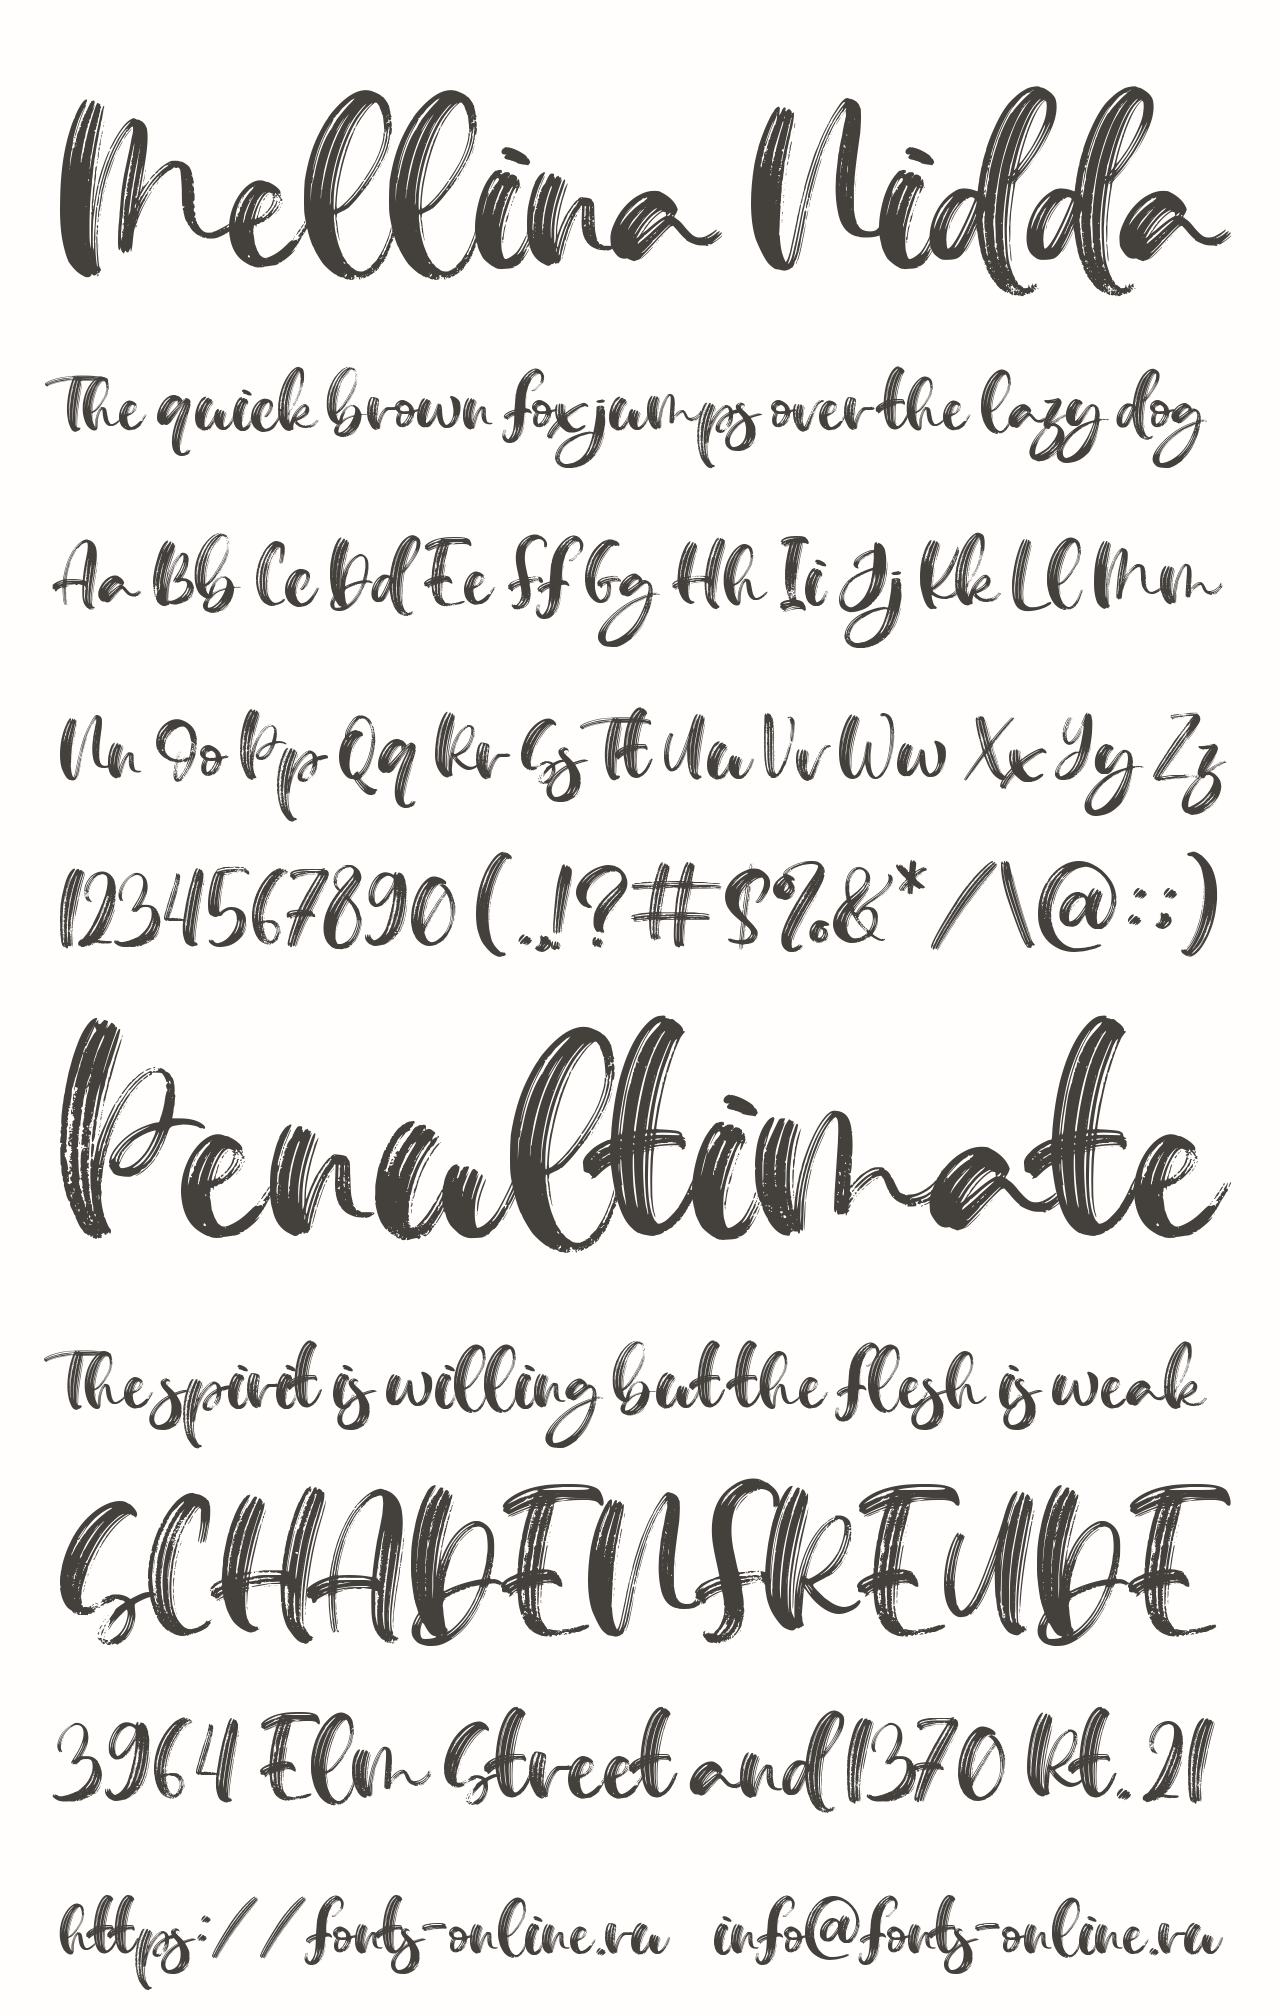 Mellina Nidda
The quick brown fox jumps over the lazy dog
Aa Bb Cc Dd Ee Ff Gg Hh Ii Jj Kk Ll Mm
Nn Oo Pp Qq Rr Ss Tt Uu Vv Ww Xx Yy Zz
1234567890 (.,!?#$%&*/\@:;)
Penultimate
The spirit is willing but the flesh is weak
SCHADENSREUDE
3964 Elm Street and 1370 Rt. 21
https://fonts-online.ru info@fonts-online.ru